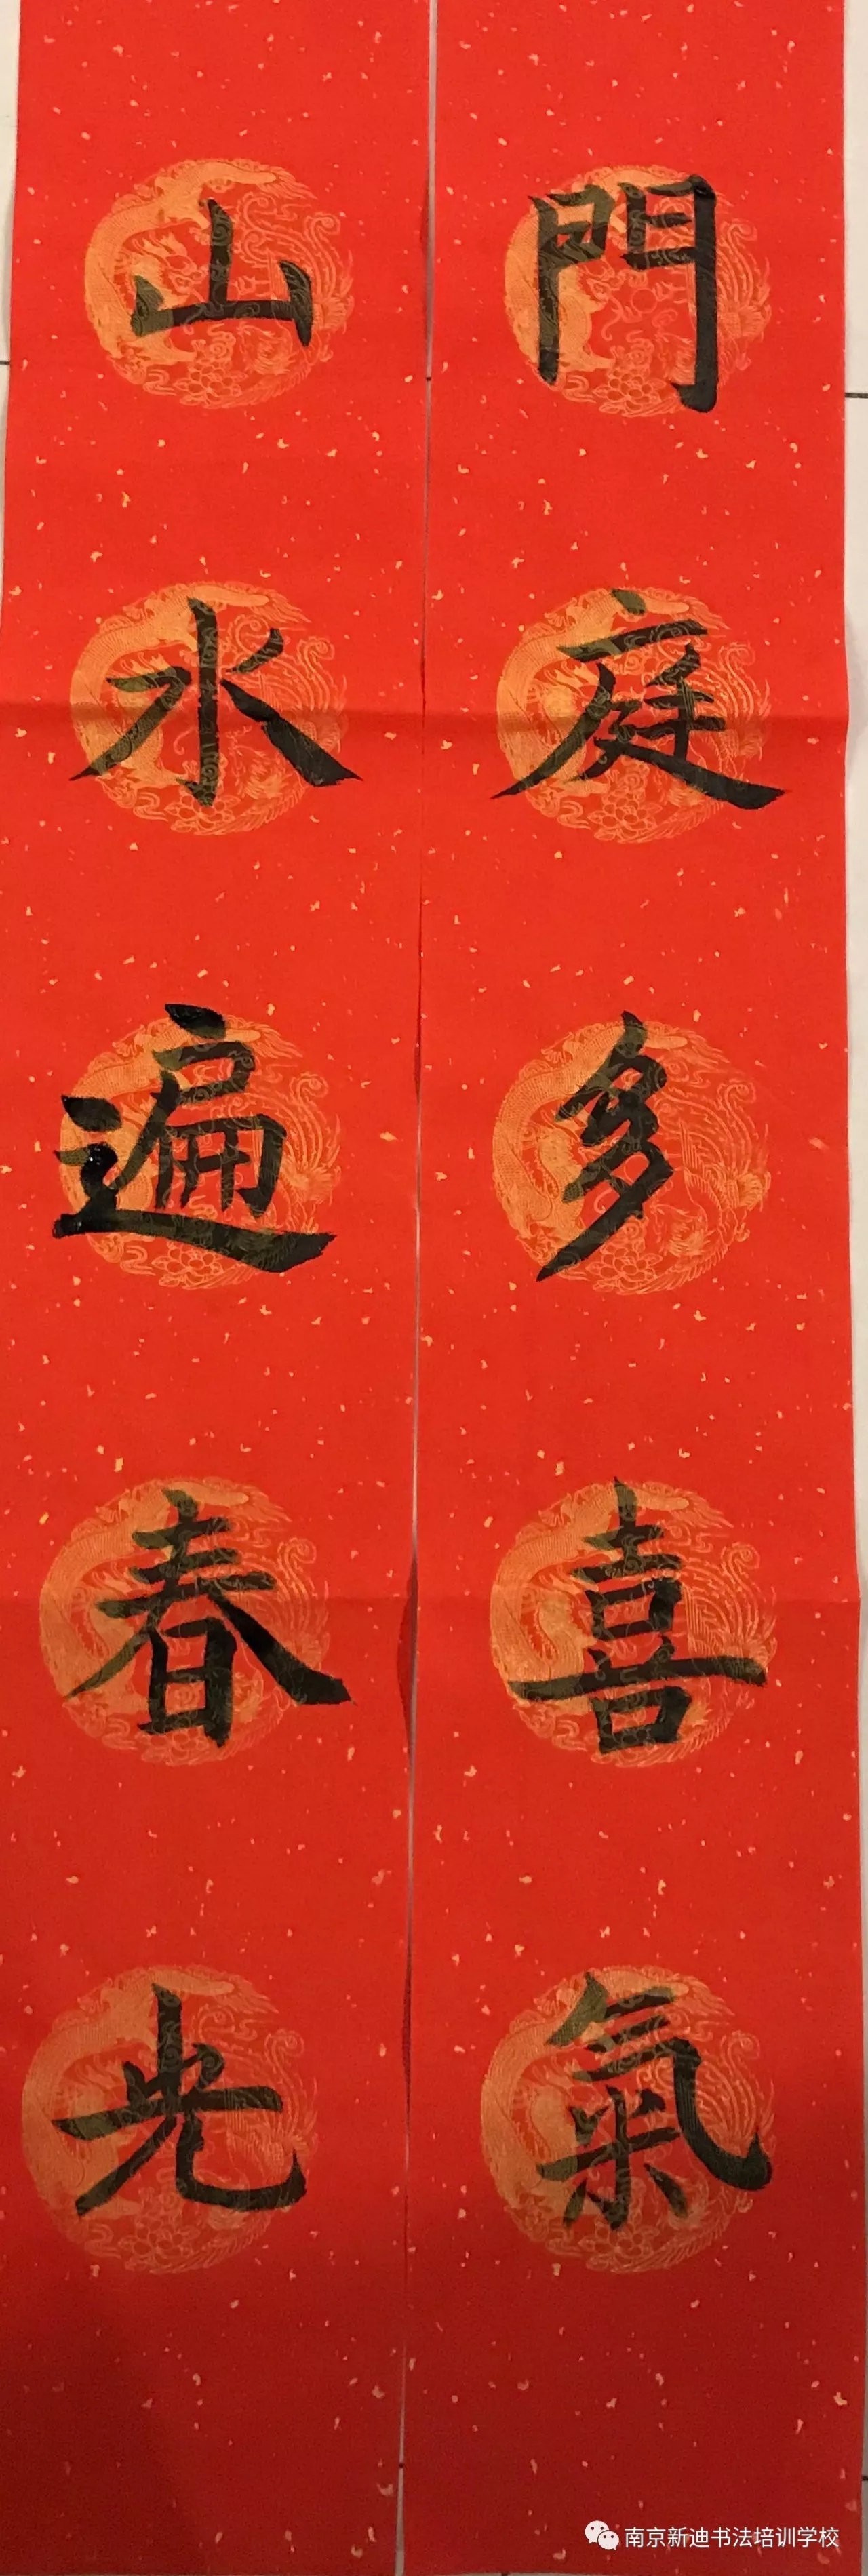 門庭多喜氣
山水遍春光
南京新迪书法培训学校